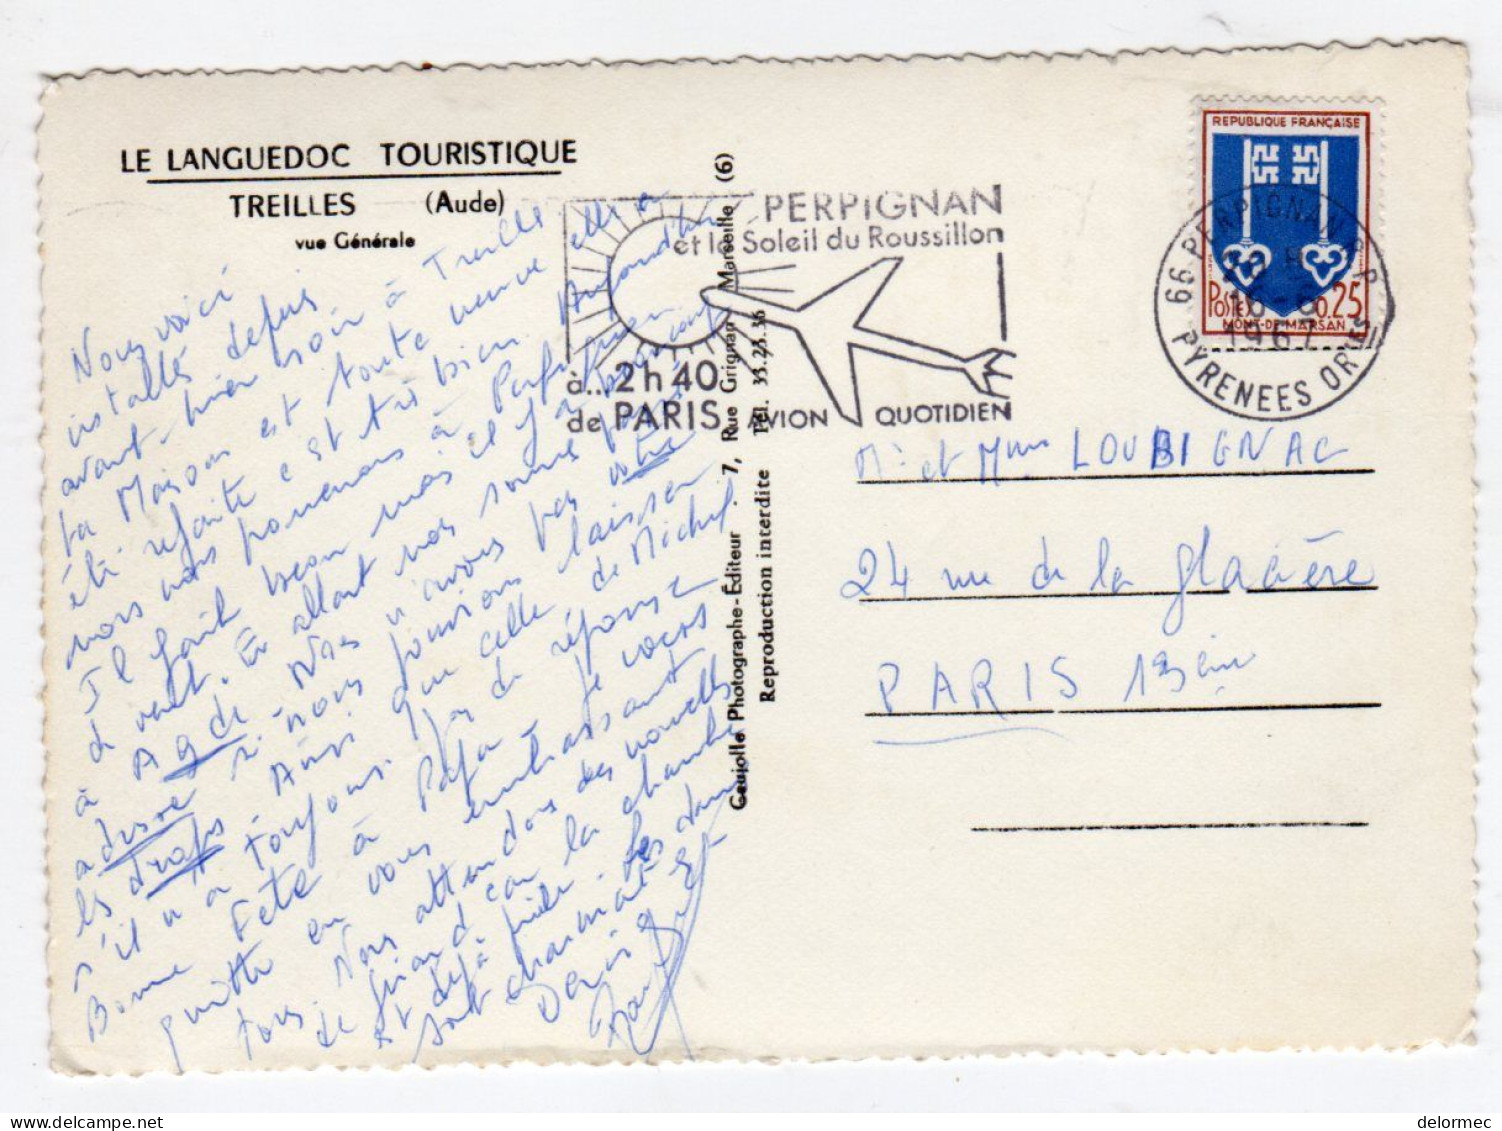 LE LANGUEDOC TOURISTIQUE
TREILLES (Aude)
vue Générale
Nous voici
installés depuis
avant-hier soir à Treilles
La Maison est toute neuve elle a
été refaite c'est très bien.
nous nous promenons à Perpignan
Il fait beau mais il y a beaucoup
de vent. En allant nos sommes passés
à Agde Mais n'avons pas votre
adresse si nous pouvions laisser
les draps Ainsi que celle de Michel
s'il y a toujours pas de réponse
Bonne Fête à Papa Je vous
quitte en vous embrassant
tous. Nous attendons des nouvelles
de quand la chambre
et déjà
sont charmants
Denise
PERPIGNAN
et le Soleil du Roussillon
à... 2 h 40
de PARIS. AVION QUOTIDIEN
Gaujolle Photographe-Éditeur . 7, Rue Grignan Marseille (6)
Reproduction interdite Tél. 33.23.36
REPUBLIQUE FRANÇAISE
POSTES 0.25
MONT-DE-MARSAN
66 PERPIGNAN R.P.
1967
PYRENEES ORIles
Mr et Mme LOUBIGNAC
24 rue de la glacière
PARIS 13ème
delormec